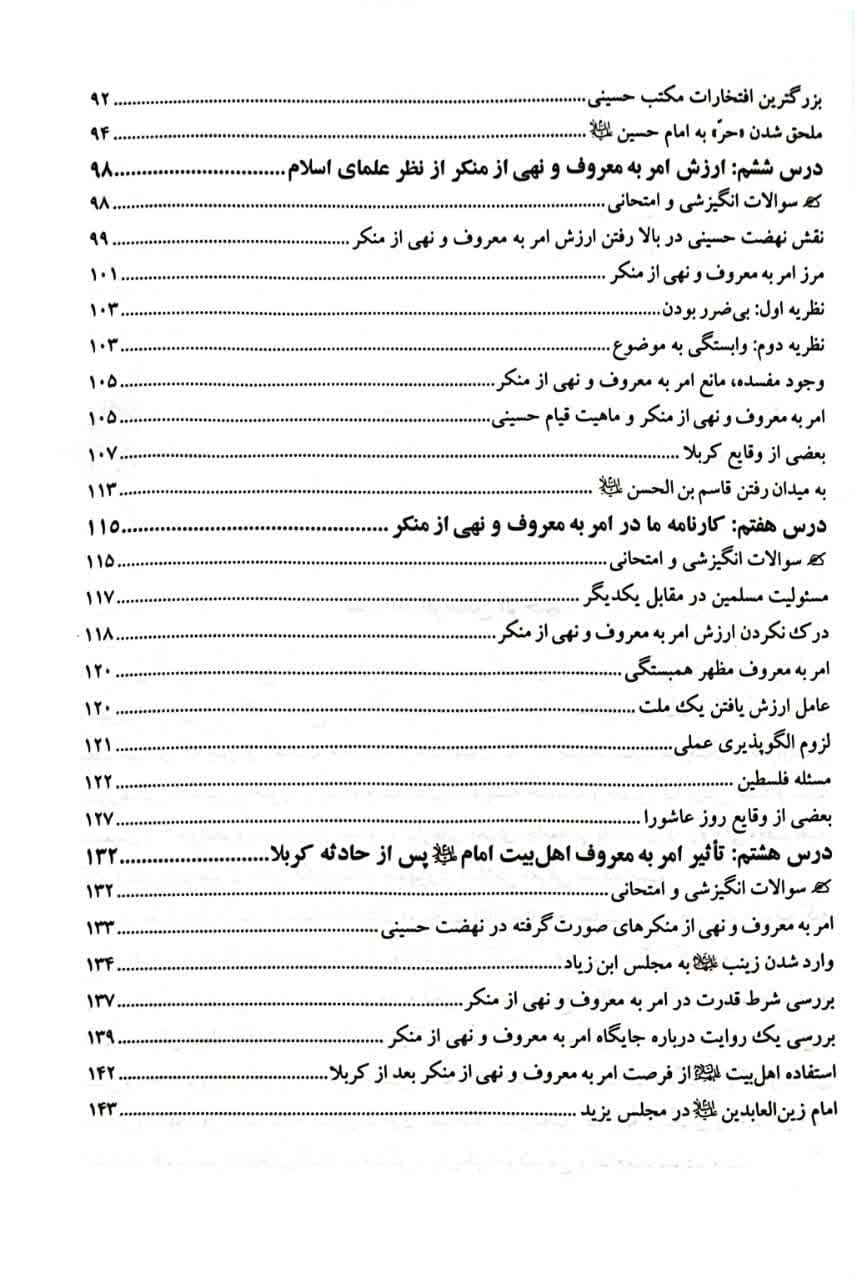 بزرگترین افتخارات مکتب حسینی ........ ۹۲
ملحق شدن «حرّ» به امام حسین علیه‌السلام ........ ۹۴
درس ششم: ارزش امر به معروف و نهی از منکر از نظر علمای اسلام ........ ۹۸
سوالات انگیزشی و امتحانی ........ ۹۸
نقش نهضت حسینی در بالا رفتن ارزش امر به معروف و نهی از منکر ........ ۹۹
مرز امر به معروف و نهی از منکر ........ ۱۰۱
نظریه اول: بی‌ضرر بودن ........ ۱۰۳
نظریه دوم: وابستگی به موضوع ........ ۱۰۳
وجود مفسده، مانع امر به معروف و نهی از منکر ........ ۱۰۵
امر به معروف و نهی از منکر و ماهیت قیام حسینی ........ ۱۰۵
بعضی از وقایع کربلا ........ ۱۰۷
به میدان رفتن قاسم بن الحسن علیه‌السلام ........ ۱۱۳
درس هفتم: کارنامه ما در امر به معروف و نهی از منکر ........ ۱۱۵
سوالات انگیزشی و امتحانی ........ ۱۱۵
مسئولیت مسلمین در مقابل یکدیگر ........ ۱۱۷
درک نکردن ارزش امر به معروف و نهی از منکر ........ ۱۱۸
امر به معروف مظهر همبستگی ........ ۱۲۰
عامل ارزش یافتن یک ملت ........ ۱۲۰
لزوم الگوپذیری عملی ........ ۱۲۱
مسئله فلسطین ........ ۱۲۲
بعضی از وقایع روز عاشورا ........ ۱۲۷
درس هشتم: تأثیر امر به معروف اهل‌بیت امام علیه‌السلام پس از حادثه کربلا ........ ۱۳۲
سوالات انگیزشی و امتحانی ........ ۱۳۲
امر به معروف و نهی از منکرهای صورت‌گرفته در نهضت حسینی ........ ۱۳۳
وارد شدن زینب علیهاالسلام به مجلس ابن زیاد ........ ۱۳۴
بررسی شرط قدرت در امر به معروف و نهی از منکر ........ ۱۳۷
بررسی یک روایت درباره جایگاه امر به معروف و نهی از منکر ........ ۱۳۹
استفاده اهل‌بیت علیهم‌السلام از فرصت امر به معروف و نهی از منکر بعد از کربلا ........ ۱۴۲
امام زین‌العابدین علیه‌السلام در مجلس یزید ........ ۱۴۳